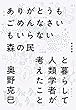 ありがとうも
ごめんなさいも
いらない
森の民
と暮らして
人類学者が
考えたこと
奥野克巳